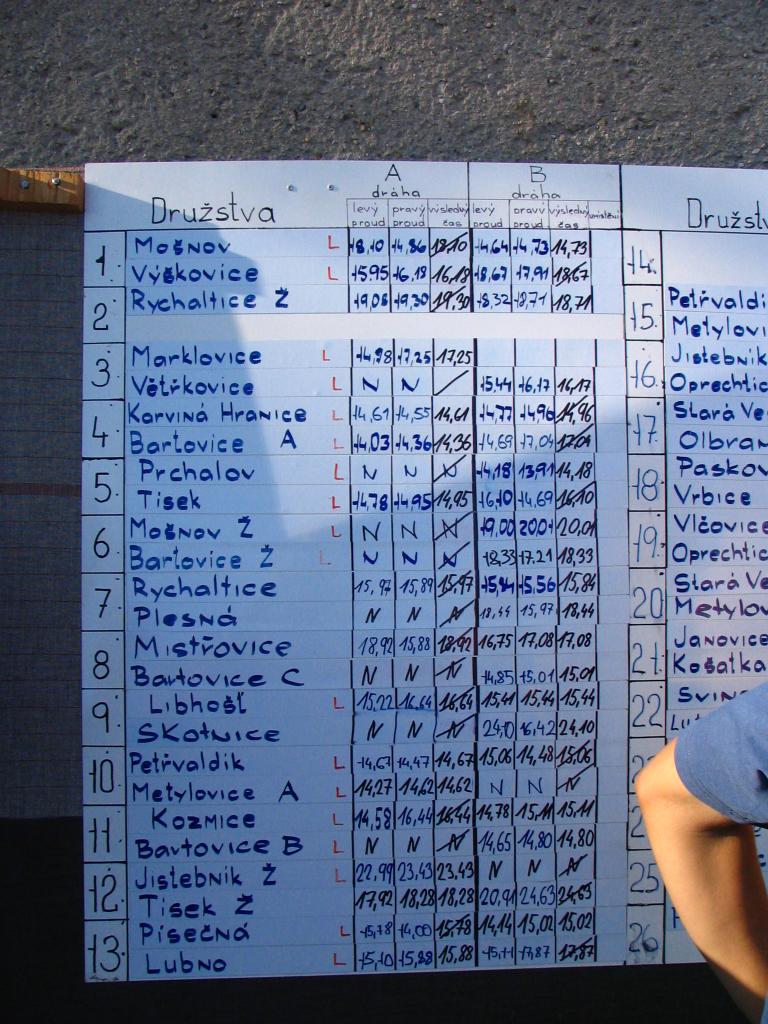 A B
dráha dráha
Družstva levý proud pravý proud výsledný čas levý proud pravý proud výsledný čas umístění
1. Mošnov L 18,10 14,86 18,10 14,64 14,73 14,73
Výškovice L 15,95 16,18 16,18 18,67 17,91 18,67
2. Rychaltice Ž 19,08 19,30 19,30 18,32 18,71 18,71
3. Marklovice L 14,98 17,25 17,25
Větřkovice L N N 15,44 16,17 16,17
4. Karviná Hranice L 14,61 14,55 14,61 14,77 14,96 14,96
Bartovice A L 14,03 14,36 14,36 14,69 17,04 17,04
5. Prchalov L N N N 14,18 13,91 14,18
Tísek L 14,78 14,95 14,95 16,10 14,69 16,10
6. Mošnov Ž N N N 19,00 20,01 20,01
Bartovice Ž L N N N 18,33 17,21 18,33
7. Rychaltice 15,97 15,89 15,97 15,84 15,56 15,84
Plesná N N N 18,44 15,97 18,44
8. Mistřovice 18,92 15,88 18,92 16,75 17,08 17,08
Bartovice C N N N 14,85 15,01 15,01
9. Libhošť L 15,22 16,64 16,64 15,41 15,44 15,44
Skotnice N N N 24,10 16,42 24,10
10. Petřvaldík L 14,67 14,47 14,67 15,06 14,48 15,06
Metylovice A L 14,27 14,62 14,62 N N N
11. Kozmice L 14,58 16,44 16,44 14,78 15,11 15,11
Bartovice B L N N N 14,65 14,80 14,80
12. Jistebník Ž L 22,99 23,43 23,43 N N N
Tísek Ž 17,92 18,28 18,28 20,91 24,63 24,63
13. Písečná L 15,78 14,00 15,78 14,14 15,02 15,02
Lubno L 15,10 15,88 15,88 15,11 17,87 17,87
Družstv
14.
15. Petřvaldí
Metylovi
16. Jistebník
Oprechtic
17. Stará Ve
Olbra
18. Paskov
Vrbice
19. Vlčovice
Oprechtic
20 Stará Ve
Metylov
21. Janovice
Košatka
22
25
26